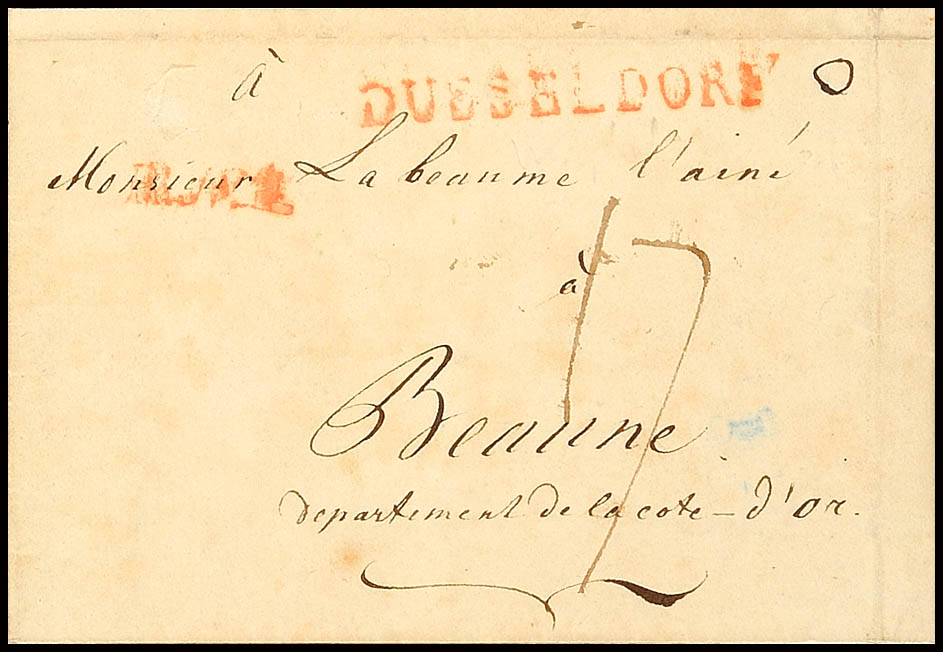 à
DUSSELDORF
Monsieur Labeaume l'ainé
à
Beaune
département de la cote-d'or.
17